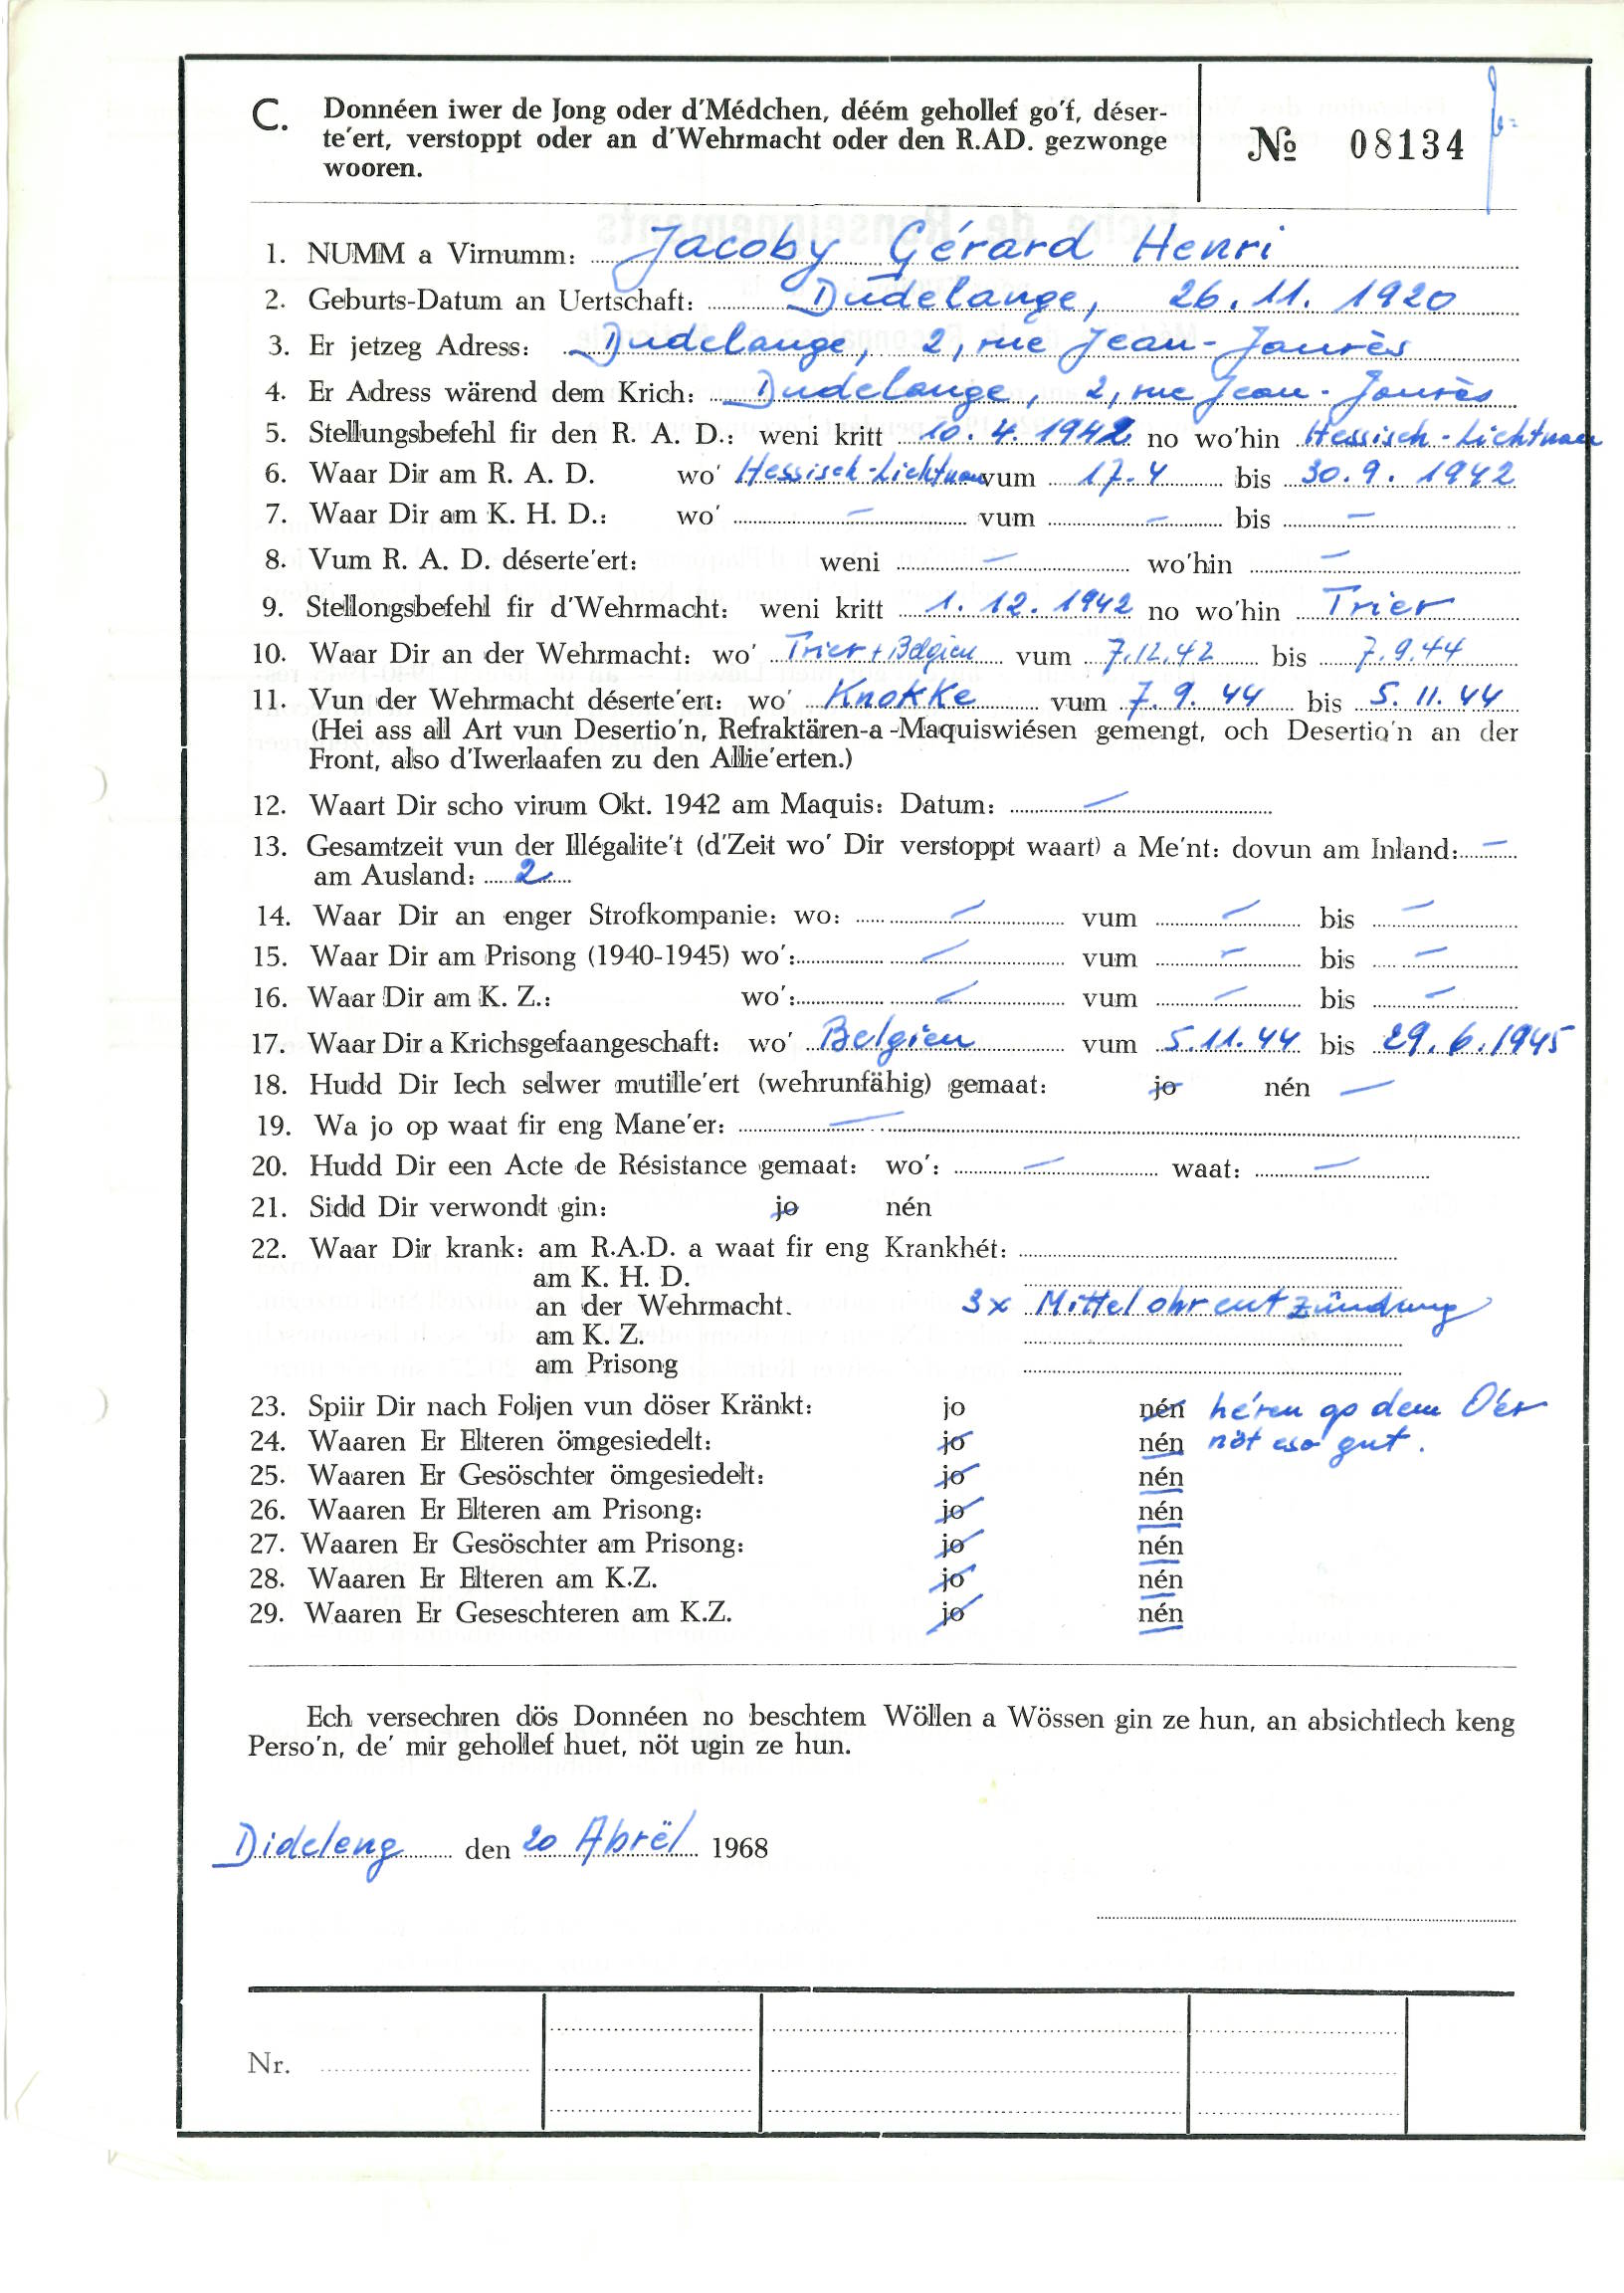 C. Donnéen iwer de Jong oder d'Médchen, déém gehollef go'f, déser-
te'ert, verstoppt oder an d'Wehrmacht oder den R.AD. gezwonge
wooren.
No 08134
1. NUMM a Virnumm: Jacoby Gérard Henri
2. Geburts-Datum an Uertschaft: Dudelange, 26.11.1920
3. Er jetzeg Adress: Dudelange, 2, rue Jean-Jaurès
4. Er Adress wärend dem Krich: Dudelange, 2, rue Jean-Jaurès
5. Stellungsbefehl fir den R. A. D.: weni kritt 10.4.1942 no wo'hin Hessisch-Lichtnau
6. Waar Dir am R. A. D. wo' Hessisch-Lichtnau vum 17.4 bis 30.9.1942
7. Waar Dir am K. H. D.: wo' — vum — bis —
8. Vum R. A. D. déserte'ert: weni — wo'hin —
9. Stellongsbefehl fir d'Wehrmacht: weni kritt 1.12.1942 no wo'hin Trier
10. Waar Dir an der Wehrmacht: wo' Trier + Belgien vum 7.12.42 bis 7.9.44
11. Vun der Wehrmacht déserte'ert: wo' Knokke vum 7.9.44 bis 5.11.44
(Hei ass all Art vun Desertio'n, Refraktären-a-Maquiswiésen gemengt, och Desertio'n an der
Front, also d'Iwerlaafen zu den Allie'erten.)
12. Waart Dir scho virum Okt. 1942 am Maquis: Datum: —
13. Gesamtzeit vun der Illégalite't (d'Zeit wo' Dir verstoppt waart) a Me'nt: dovun am Inland: —
am Ausland: 2
14. Waar Dir an enger Strofkompanie: wo: — vum — bis —
15. Waar Dir am Prisong (1940-1945) wo': — vum — bis —
16. Waar Dir am K. Z.: wo': — vum — bis —
17. Waar Dir a Krichsgefaangeschaft: wo' Belgien vum 5.11.44 bis 29.6.1945
18. Hudd Dir Iech selwer mutille'ert (wehrunfähig) gemaat: jo nén —
19. Wa jo op waat fir eng Mane'er: —
20. Hudd Dir een Acte de Résistance gemaat: wo': — waat: —
21. Sidd Dir verwondt gin: jo nén
22. Waar Dir krank: am R.A.D. a waat fir eng Krankhét:
am K. H. D.
an der Wehrmacht. 3x Mittelohrentzündung
am K. Z.
am Prisong
23. Spiir Dir nach Foljen vun döser Kränkt: jo nén he'ren op dem O'er
24. Waaren Er Elteren ömgesiedelt: jo nén nöt eso gut.
25. Waaren Er Gesöschter ömgesiedelt: jo nén
26. Waaren Er Elteren am Prisong: jo nén
27. Waaren Er Gesöschter am Prisong: jo nén
28. Waaren Er Elteren am K.Z. jo nén
29. Waaren Er Geseschteren am K.Z. jo nén
Ech versechren dös Donnéen no beschtem Wöllen a Wössen gin ze hun, an absichtlech keng
Perso'n, de' mir gehollef huet, nöt ugin ze hun.
Dideleng den 20 Abrël 1968
Nr.